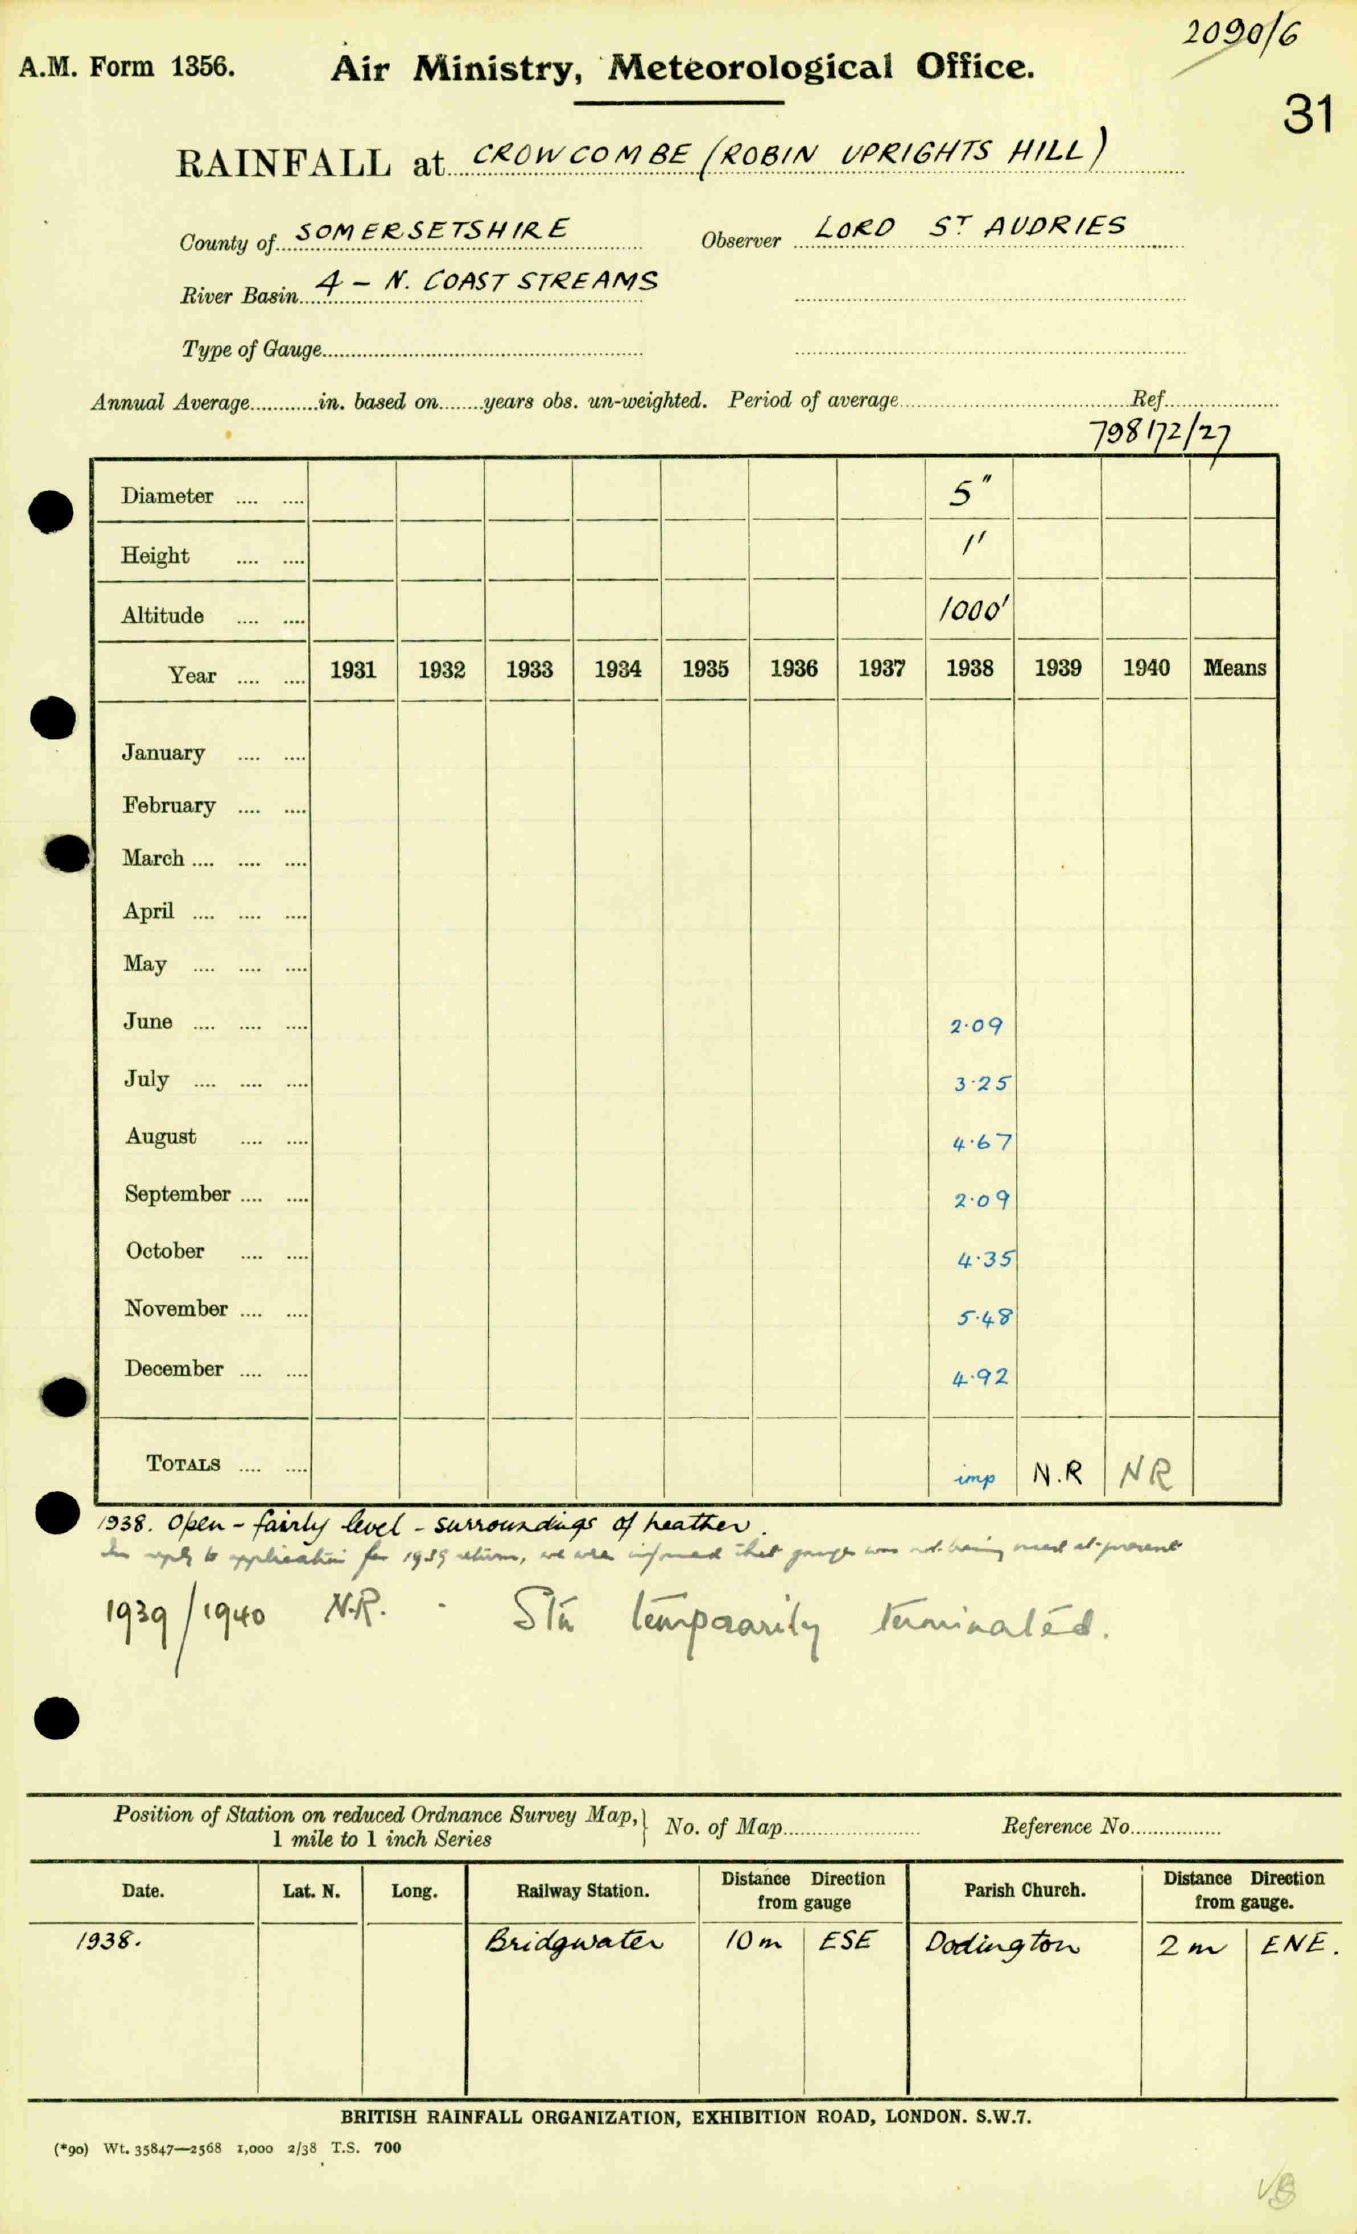 2090/6
A.M. Form 1356. Air Ministry, Meteorological Office.
31
RAINFALL at CROWCOMBE (ROBIN UPRIGHTS HILL)
County of SOMERSETSHIRE Observer LORD ST AUDRIES
River Basin 4 - N. COAST STREAMS
Type of Gauge
Annual Average in. based on years obs. un-weighted. Period of average Ref
798172/27
Diameter 5"
Height 1'
Altitude 1000'
Year 1931 1932 1933 1934 1935 1936 1937 1938 1939 1940 Means
January
February
March
April
May
June 2.09
July 3.25
August 4.67
September 2.09
October 4.35
November 5.48
December 4.92
TOTALS imp N.R NR
1938. Open - fairly level - surroundings of heather.
In reply to application for 1939 return, we were informed that gauge was not being used at present
1939/1940 N.R. - Stn temporarily terminated.
Position of Station on reduced Ordnance Survey Map, 1 mile to 1 inch Series } No. of Map Reference No.
Date. Lat. N. Long. Railway Station. Distance Direction from gauge Parish Church. Distance Direction from gauge.
1938. Bridgwater 10m ESE Dodington 2m ENE.
BRITISH RAINFALL ORGANIZATION, EXHIBITION ROAD, LONDON. S.W.7.
(*90) Wt. 35847—2568 1,000 2/38 T.S. 700